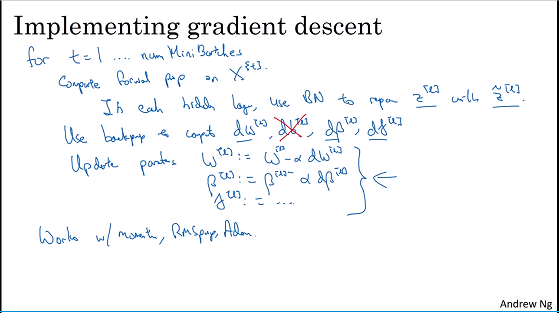 Implementing gradient descent
for t=1 .... num MiniBatches
Compute forward prop on X^{t}.
In each hidden layer, use BN to repar z^[l] with z̃^[l].
Use backprop to compute dw^[l], db^[l], dβ^[l], dγ^[l]
Update params w^[l] := w^[l] - α dw^[l]
β^[l] := β^[l] - α dβ^[l]
γ^[l] := ....
Works w/ momentum, RMSprop, Adam.
Andrew Ng